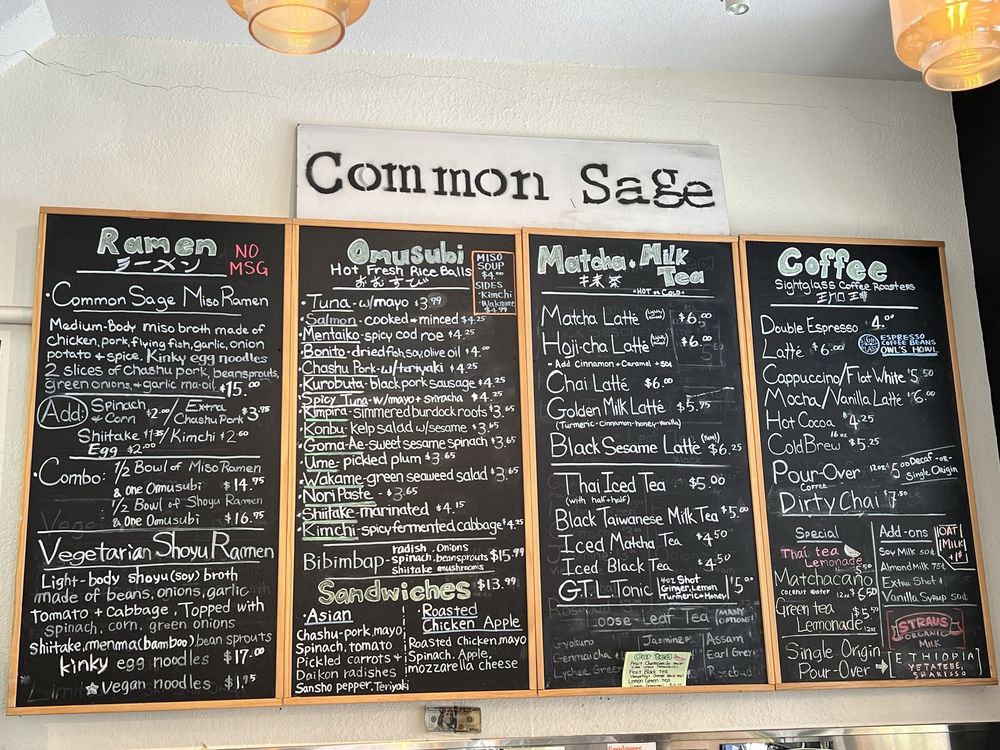 Common Sage
Ramen
ラーメン
NO
MSG
• Common Sage Miso Ramen
Medium-Body miso broth made of
chicken, pork, flying fish, garlic, onion
potato + spice. Kinky egg noodles
2 slices of Chashu pork, beansprouts,
green onions, + garlic ma-oil. $15.00
Add: Spinach + Corn $2.00 / Extra Chashu Pork $3.75
Shiitake $1.35 / Kimchi $2.60
Egg $2.00
• Combo: 1/2 Bowl of Miso Ramen
& one Omusubi $14.95
1/2 Bowl of Shoyu Ramen
& One Omusubi $16.95
Vegetarian Shoyu Ramen
Light-body shoyu (soy) broth
made of beans, onions, garlic
tomato + cabbage. Topped with
spinach, corn, green onions
shiitake, menma (bamboo) bean sprouts
kinky egg noodles $17.00
☆ Vegan noodles $1.75
Omusubi
Hot Fresh Rice Balls
おむすび
MISO
SOUP
$4.00
SIDES
• Kimchi
• Wakame
$4.99
• Tuna - w/mayo $3.99
• Salmon - cooked + minced $4.25
• Mentaiko - spicy cod roe $4.25
• Bonito - dried fish, soy, olive oil $4.00
• Chashu Pork - w/teriyaki $4.25
• Kurobuta - black pork sausage $4.25
• Spicy Tuna - w/mayo + sriracha $4.25
• Kimpira - simmered burdock roots $3.65
• Konbu - kelp salad w/sesame $3.65
• Goma-Ae - sweet sesame spinach $3.65
• Ume - pickled plum $3.65
• Wakame - green seaweed salad $3.65
• Nori Paste - $3.65
• Shiitake - marinated $4.15
• Kimchi - spicy fermented cabbage $4.25
Bibimbap - radish, Onions
spinach, beansprouts $15.99
Shiitake mushrooms
Sandwiches $13.99
• Asian
Chashu-pork, mayo,
Spinach, tomato
Pickled carrots +
Daikon radishes
Sansho pepper, Teriyaki
• Roasted
Chicken Apple
Roasted Chicken, mayo
Spinach, Apple,
mozzarella cheese
Matcha + Milk
Tea
抹茶
• HOT or COLD •
Matcha Latté $6.00
Hojicha Latté $6.00
• Add Cinnamon + Caramel + 50¢
Chai Latté $6.00
Golden Milk Latté $5.75
(Turmeric - cinnamon - honey - vanilla)
Black Sesame Latté (Yum!) $6.25
Thai Iced Tea $5.00
(with half + half)
Black Taiwanese Milk Tea $5.00
Iced Matcha Tea $4.50
Iced Black Tea $4.50
G.T.L. Tonic 4oz Shot
Ginger, Lemon,
Turmeric + Honey $5.00
Loose-Leaf Tea (MANY OPTIONS!)
Gyokuro
Genmaicha
Lychee Green
Jasmine
Assam
Earl Grey
Rosebud
Our tea
Coffee
Sightglass Coffee Roasters
Double Espresso $4.00
Latté $6.00
ESPRESSO
COFFEE BEANS
OWL'S HOWL
Cappuccino/Flat White $5.50
Mocha/Vanilla Latté $6.00
Hot Cocoa $4.25
Cold Brew 16oz $5.25
Pour-Over Coffee 12oz $5.00 Decaf -or- Single Origin
Dirty Chai $7.50
Special
Thai tea
Lemonade
Matchacano
coconut water 12oz $6.50
Green tea
Lemonade $5.50 12oz
Add-ons
Soy Milk 50¢
Almond Milk 75¢
Extra Shot $1
Vanilla Syrup 50¢
OAT
MILK
+$1
STRAUS
ORGANIC
MILK
Single Origin
Pour-Over →
ETHIOPIA
YETATEBE,
SHAKISSO